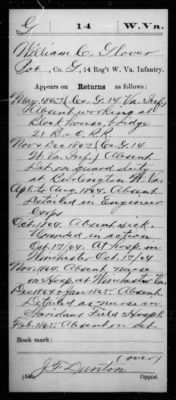 G 14 W.Va.
William C. Glover
Pvt., Co. G, 14 Reg't W. Va. Infantry.
Appears on Returns as follows:
May 1863 (Co. G. 14 Va. Inf.)
Absent working at
Block House, bridge
21 B & O. R.R.
Nov & Dec 1863 (Co G 14
W. Va. Inf.) Absent
Det. on guard duty
at Burlington W. Va.
Apl. to Aug 1864. Absent
Detailed in Engineer
Corps
Oct. 1864. Absent sick.
Wounded in action
Oct. 12/64. At hosp. in
Winchester Oct. 12/64
Nov. 1864. Absent, nurse
in Hosp. at Winchester Va.
Dec 1864 & Jan 1865. Absent
Detailed as nurse in
Sheridans Field Hosp.
Feb. 1865. Absent on det.
Book mark:
(over)
J. F. Denton
Copyist.